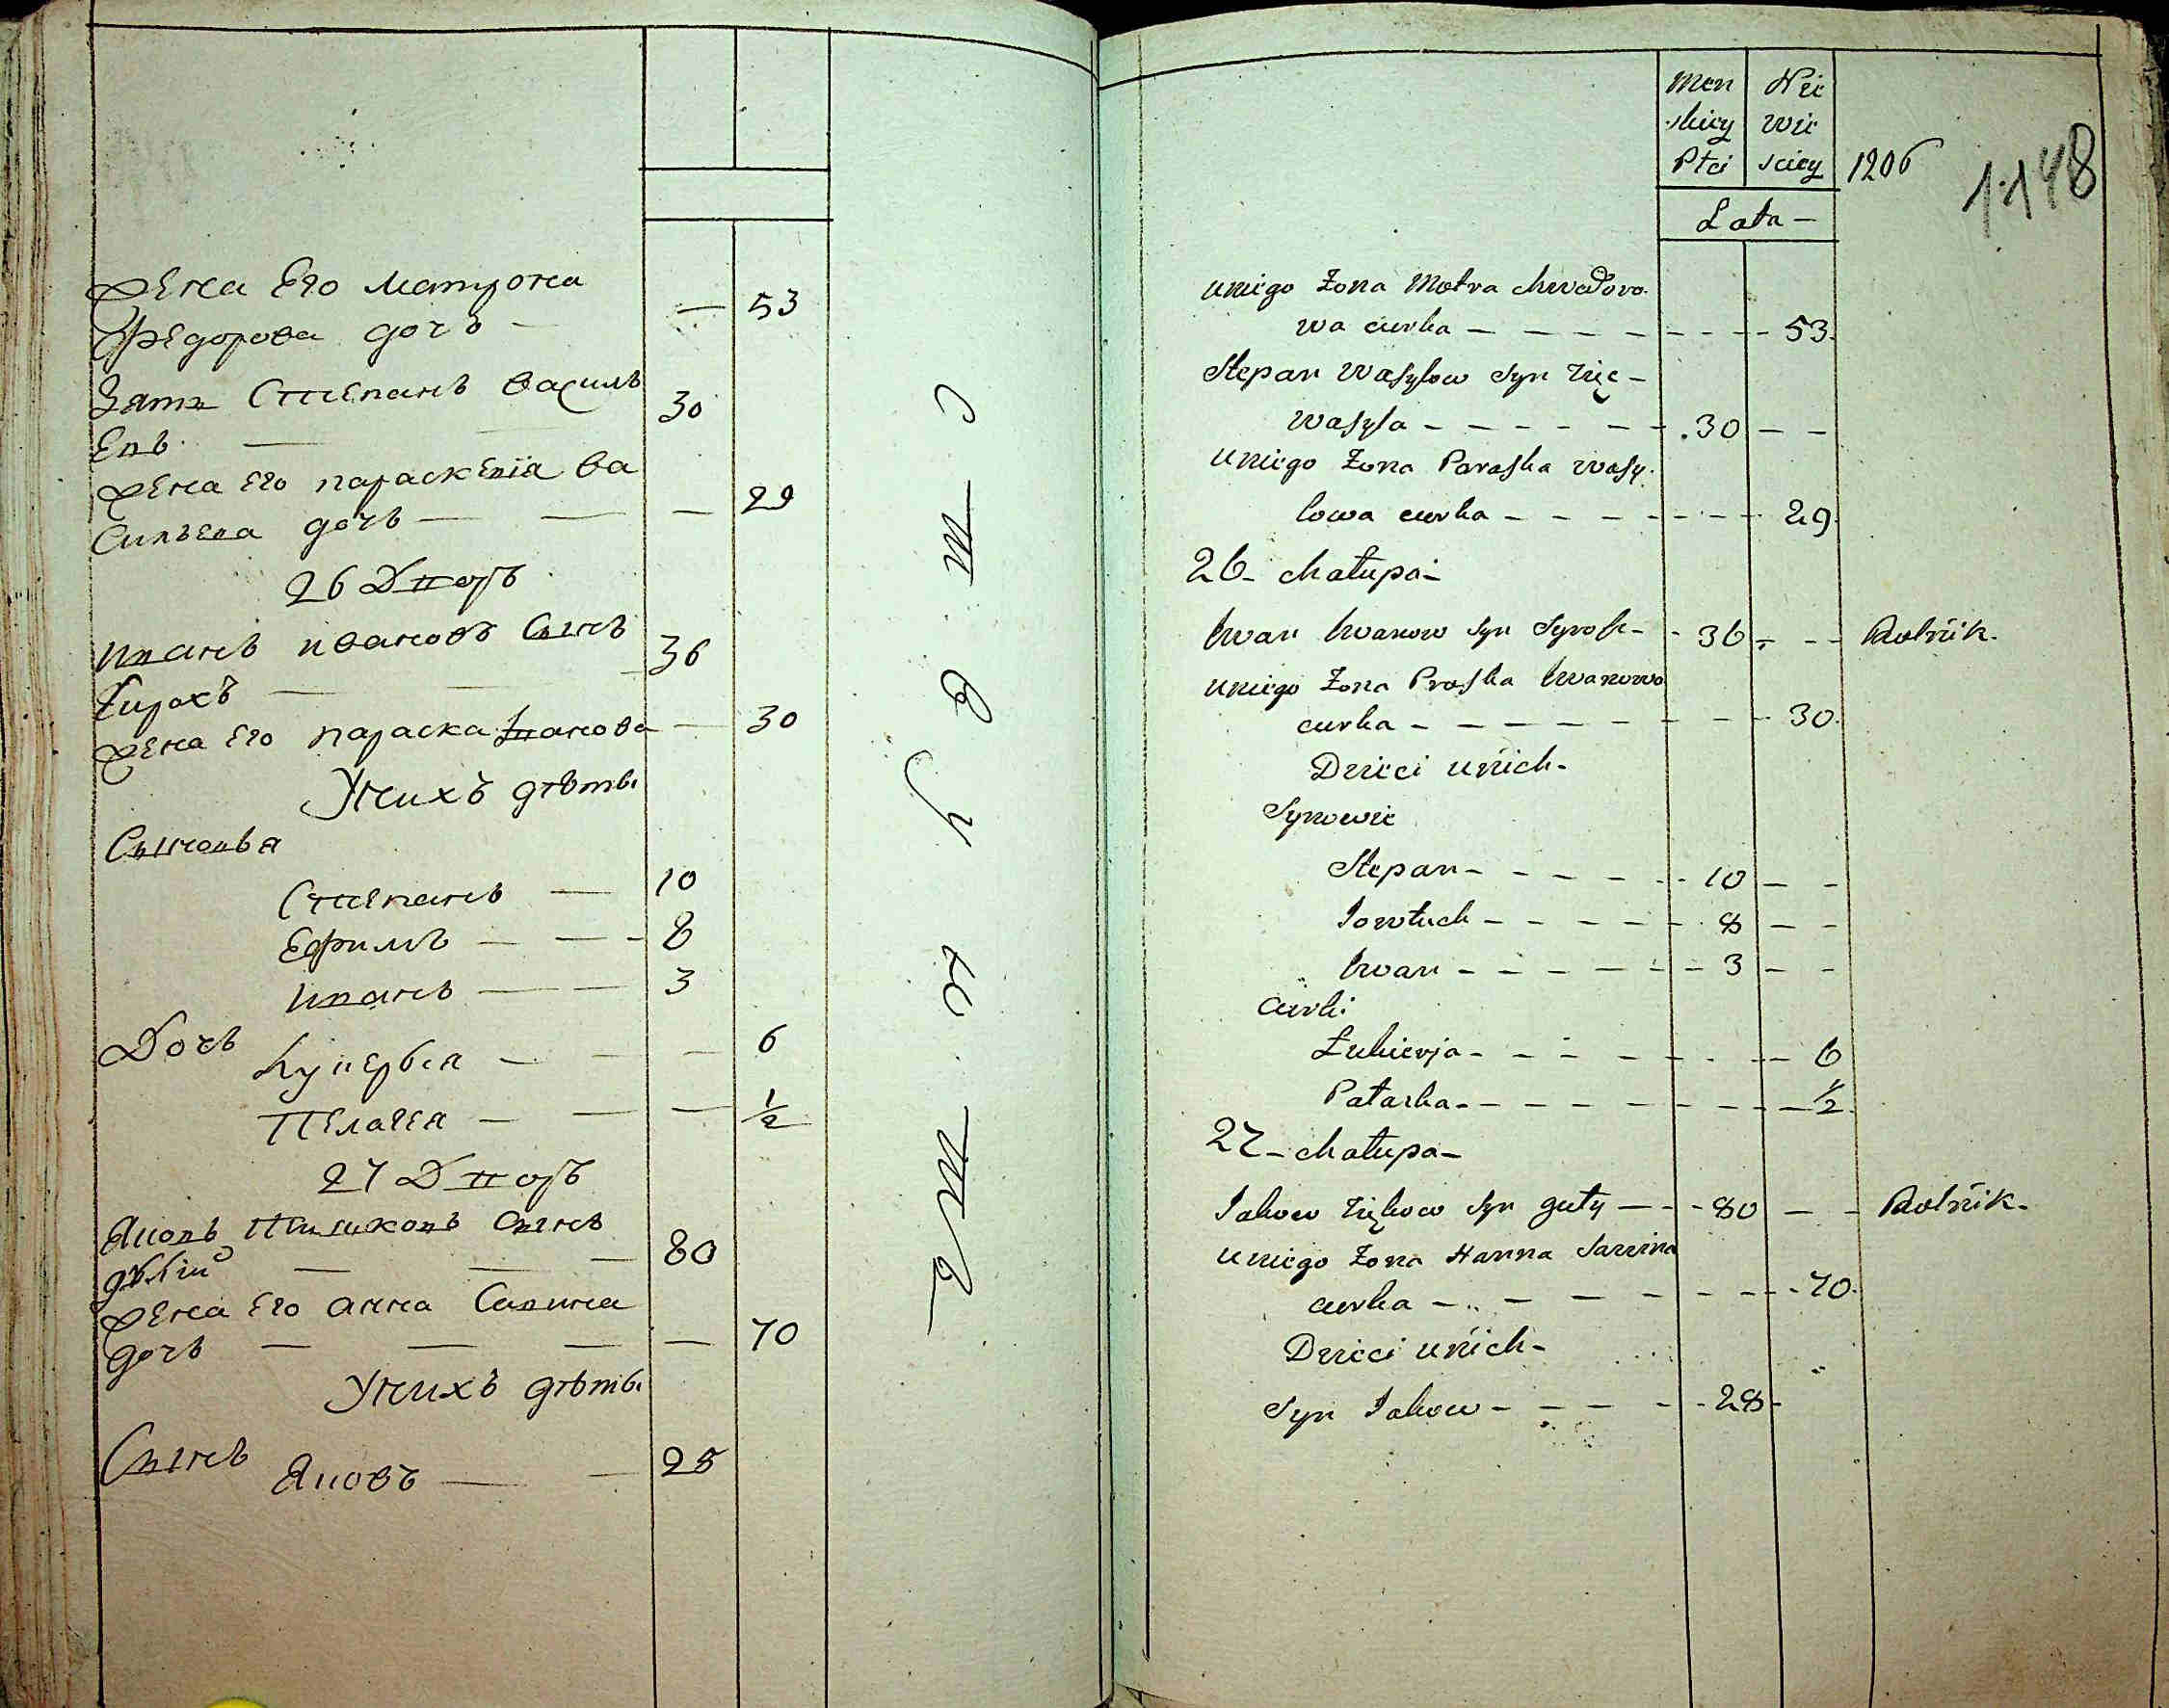 жена Его Матрона
Федорова дочь — — 53
Зять Степанъ Василь 30
Евъ —
жена Его параскевія Ва
Сильева дочь — — — 29
26 Дворъ
Иванъ ивановъ Сынъ 36
— —
жена Его параска Іванова — 30
У нихъ дѣти
Сыновья
Степанъ — 10
Ефимъ — — - 8
Иванъ — — 3
Дочь
Лукерья — — — 6
Пелагея — — — ½
27 Дворъ
Яковъ Сынъ
— — — 80
жена Его анна Савина
дочь — — — — 70
У нихъ дѣти
Сынъ
Яковъ — — 28
Men Nie
skiey wie
Płci sciey 1206
1148
Lata —
u niego Żona Motra Chwedoro-
wa curka — — — — — — 53.
Stepan Wasylow Syn Zięc -
Wasyla — — — — — 30 — —
u niego Żona Paraska Wasy-
lowa curka — — — — — — 29.
26 - Chałupa -
Iwan Iwanow Syn - 36 - - - Rolnik.
u niego Żona Praska Iwanowa
curka — — — — — — — 30.
Dzieci u nich -
Synowie
Stepan - - - - - - 10 — -
Jowtuch - - - - - - 8 — -
Iwan - - - - - - 3 — -
Curki
Łukierja - - - - - - - 6
Pałaska - - - - - - - ½.
27 - Chałupa -
Jakow Syn — - - 80 — - Rolnik.
u niego Żona Hanna Sawina
curka - - - - - - - - 70.
Dzieci u nich -
Syn Jakow - - - - - - 28 -